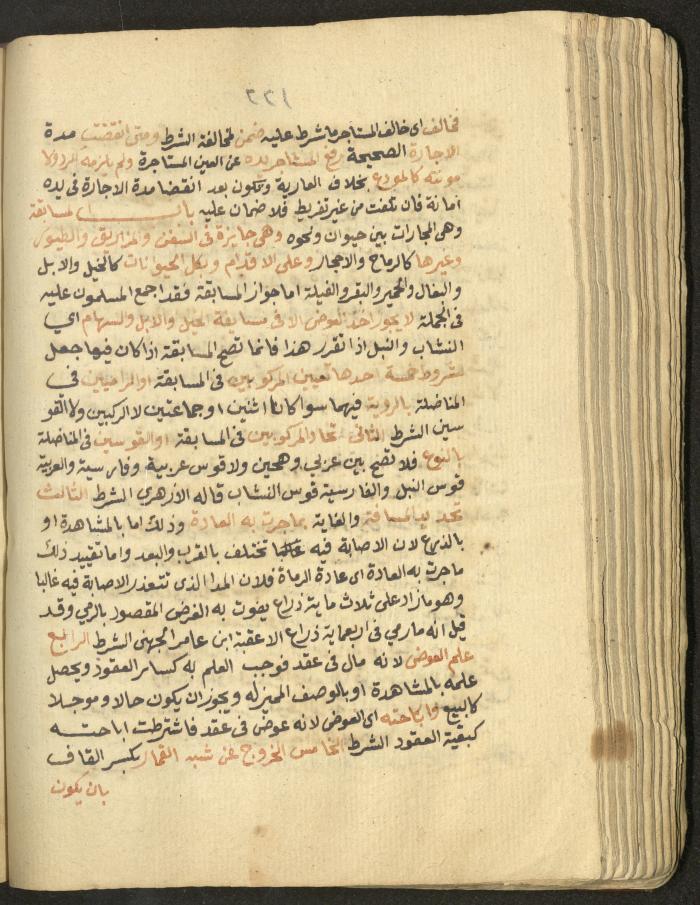 ١٢٢
فخالف اى خالف المستاجر ما شرط عليه ضمن لمخالفة الشرط ومتى انقضت مدة
الاجارة الصحيحة رفع المستاجر يده عن العين المستاجرة ولم يلزمه الرد ولا
مونته كالمودع بخلاف العارية وتكون بعد انقضا مدة الاجارة فى يده
امانة فان تلفت من غير تفريط فلا ضمان عليه باب المسابقة
وهى المجارات بين حيوان ونحوه وهى جايزة فى السفن والمزاريق والطيور
وغيرها كالرماح والاحجار وعلى الاقدام وبكل الحيوانات كالخيل والابل
والبغال والحمير والبقر والفيلة اما جواز المسابقة فقد اجمع المسلمون عليه
فى الجملة لا يجوز اخذ العوض الا فى مسابقة الخيل والابل والسهام اي
النشاب والنبل اذا تقرر هذا فانما تصح المسابقة اذا كان فيها جعل
لشروط خمسة احدها تعيين المركوبين فى المسابقة او الراميين في
المناضلة بالروية فيهما سوا كانا اثنين او جماعتين لا الركبين ولا القو
سين الشرط الثانى تحاد المركوبين فى المسابقة او القوسين فى المناضلة
بالنوع فلا تصح بين عربي وهجين ولا قوس عربية وفارسية والعربية
قوس النبل والفارسية قوس النشاب قاله الازهري الشرط الثالث
تحديد المسافة والغاية بما جرت به العادة وذلك اما بالمشاهدة او
بالذرع لان الاصابة فيه غالبا تختلف بالقرب والبعد واما تقييد ذلك
ما جرت به العادة اى عادة الرماة فلان المدا الذى تتعذر الاصابة فيه غالبا
وهو ما زاد على ثلاث ماية ذراع يفوت به الغرض المقصود بالرمي وقد
قيل انه ما رمي فى اربعماية ذراع الا عقبة ابن عامر الجهنى الشرط الرابع
علم العوض لانه مال فى عقد فوجب العلم به كساير العقود ويحصل
علمه بالمشاهدة او بالوصف المميز له ويجوز ان يكون حالا وموجلا
كالبيع واباحته اى العوض لانه عوض فى عقد فاشترطت اباحته
كبقية العقود الشرط الخامس الخروج عن شبه القمار بكسر القاف
بان يكون